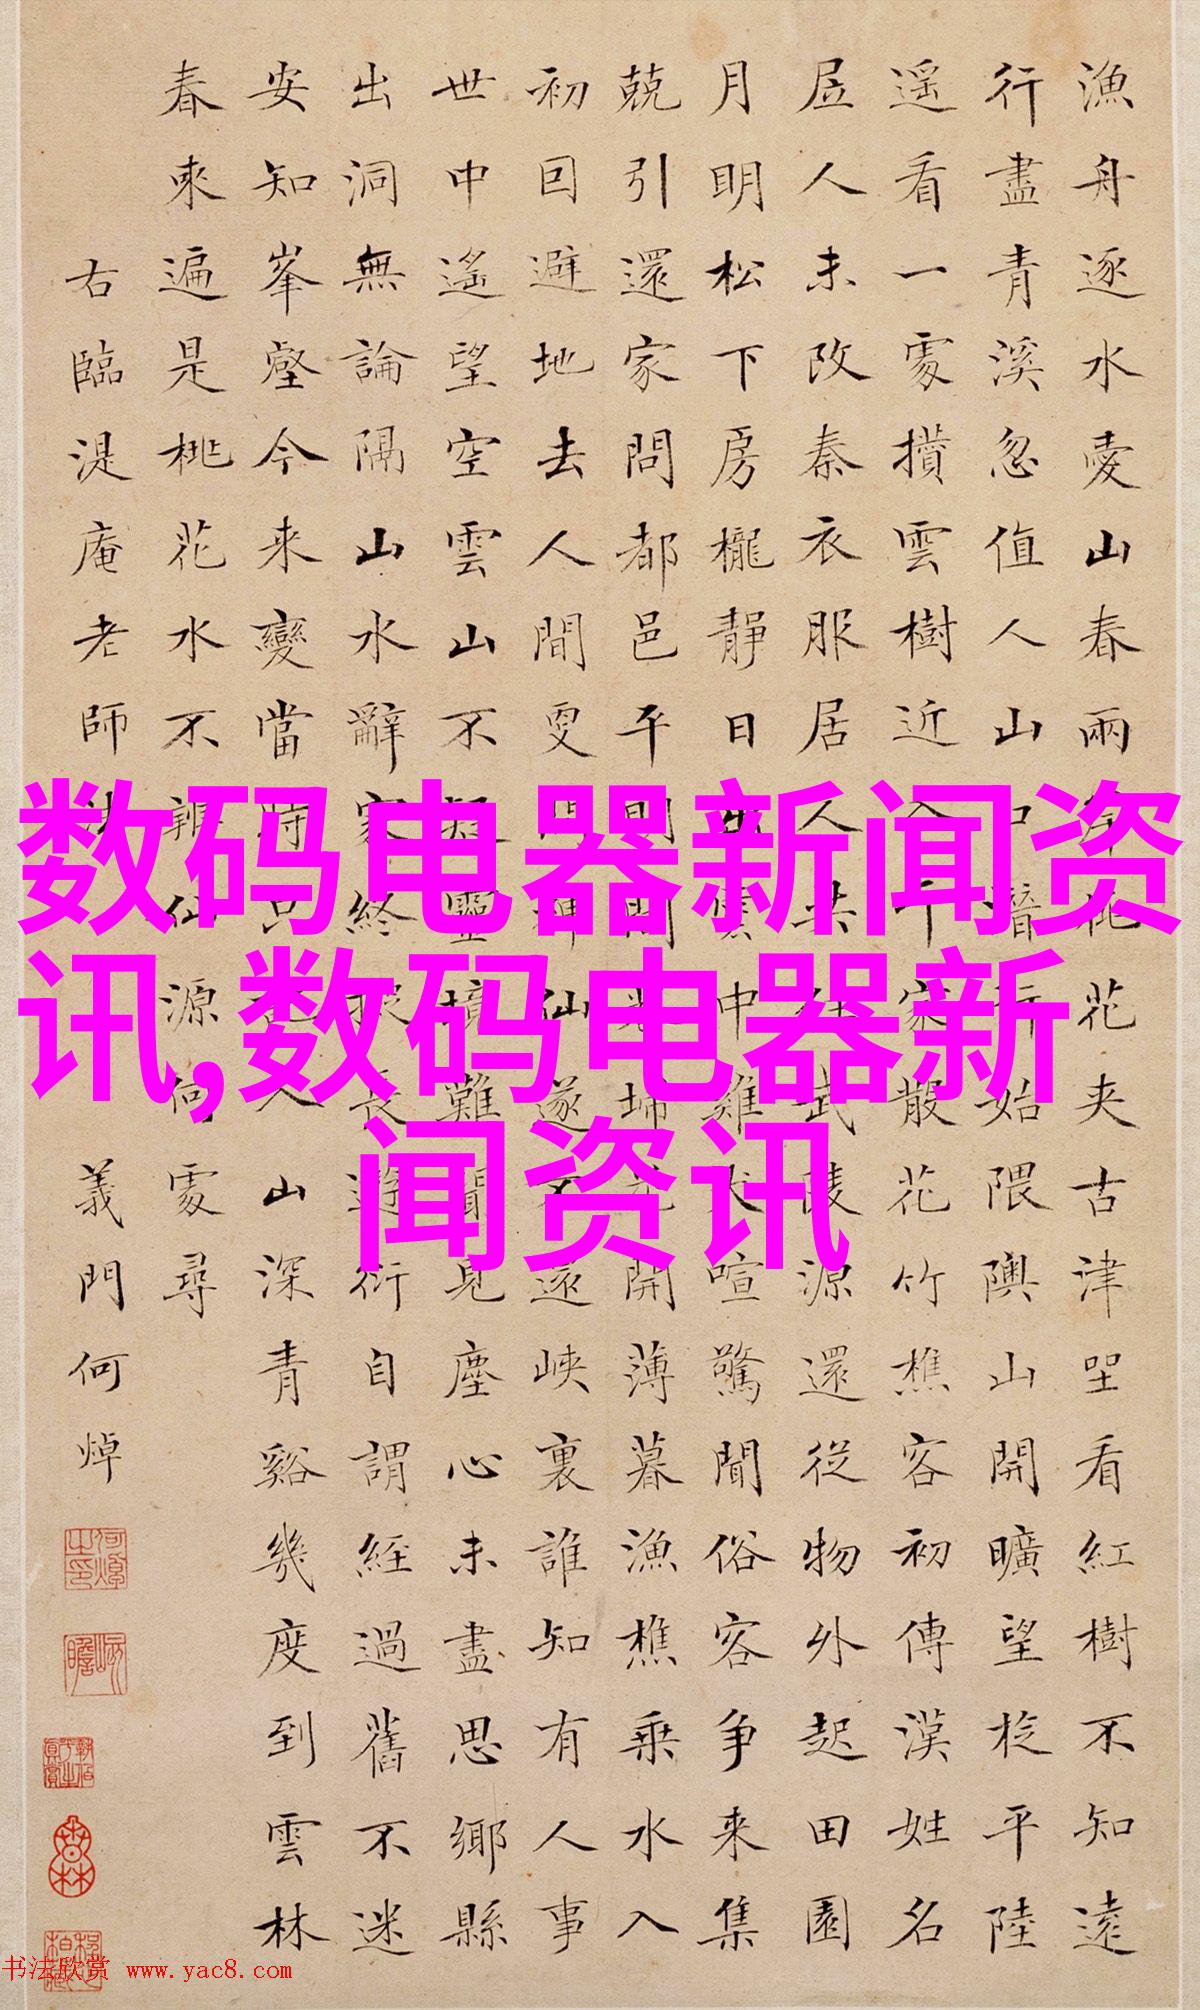 漁舟逐水愛山春兩岸桃花夾古津坐看紅樹不知遠
行盡青溪忽值人山口潛行始隈隩山開曠望旋平陸
遥看一處攢雲樹近入千家散花竹樵客初傳漢姓名
居人未改秦衣服居人共住武陵源還從物外起田園
月明松下房櫳靜日出雲中雞犬喧驚聞俗客爭來集
競引還家問都邑平明閭巷掃花開薄暮漁樵乘水入
初因避地去人間更問神仙遂不還峽裏誰知有人事
世中遙望空雲山不疑靈境難聞見塵心未盡思鄉縣
出洞無論隔山水辭家終擬長遊衍自謂經過舊不迷
安知峯壑今来變當時只記入山深青谿幾度到雲林
春來遍是桃花水不辨仙源何處尋
右臨湜庵老師法
義門何焯
数码电器新闻资
讯,数码电器新
闻资讯
书法欣赏 www.yac8.com